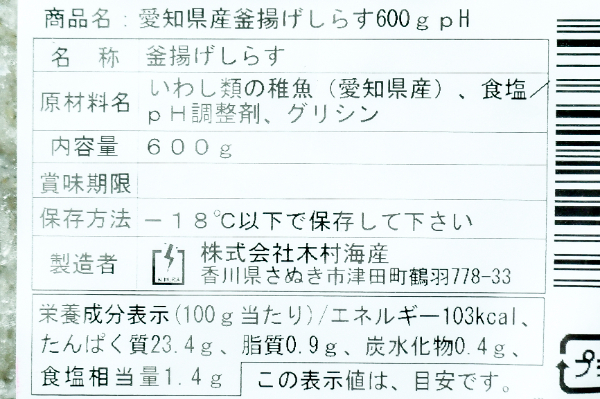 商品名：愛知県産釜揚げしらす600ｇｐH
名　称　釜揚げしらす
原材料名　いわし類の稚魚（愛知県産）、食塩／
ｐＨ調整剤、グリシン
内容量　６００ｇ
賞味期限
保存方法　－１８℃以下で保存して下さい
製造者　株式会社木村海産
香川県さぬき市津田町鶴羽778-33
栄養成分表示(100ｇ当たり)/エネルギー103kcal、
たんぱく質23.4ｇ、脂質0.9ｇ、炭水化物0.4ｇ、
食塩相当量1.4ｇ　この表示値は、目安です。
プ